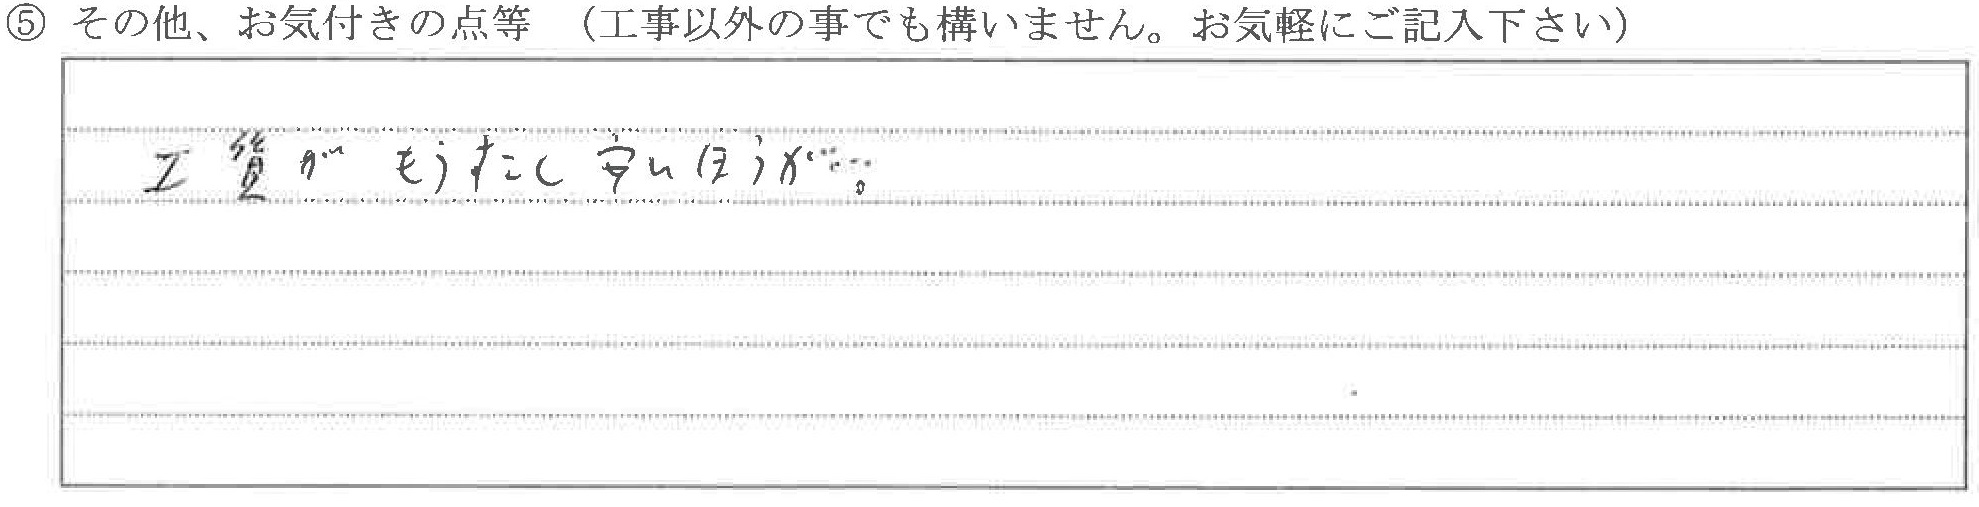 ⑤ その他、お気付きの点等 （工事以外の事でも構いません。お気軽にご記入下さい）
工賃が もうすこし 安いほうが…。